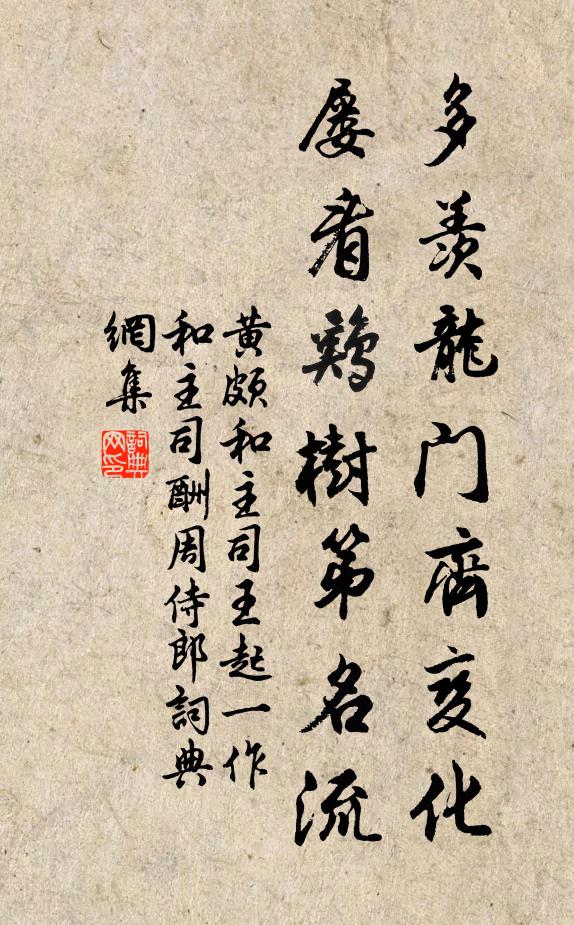 多羨龍門齊变化
屡看鷄樹第名流
黄頗和主司王起一作
和主司酬周侍郎詞典
網集
詞典
网印